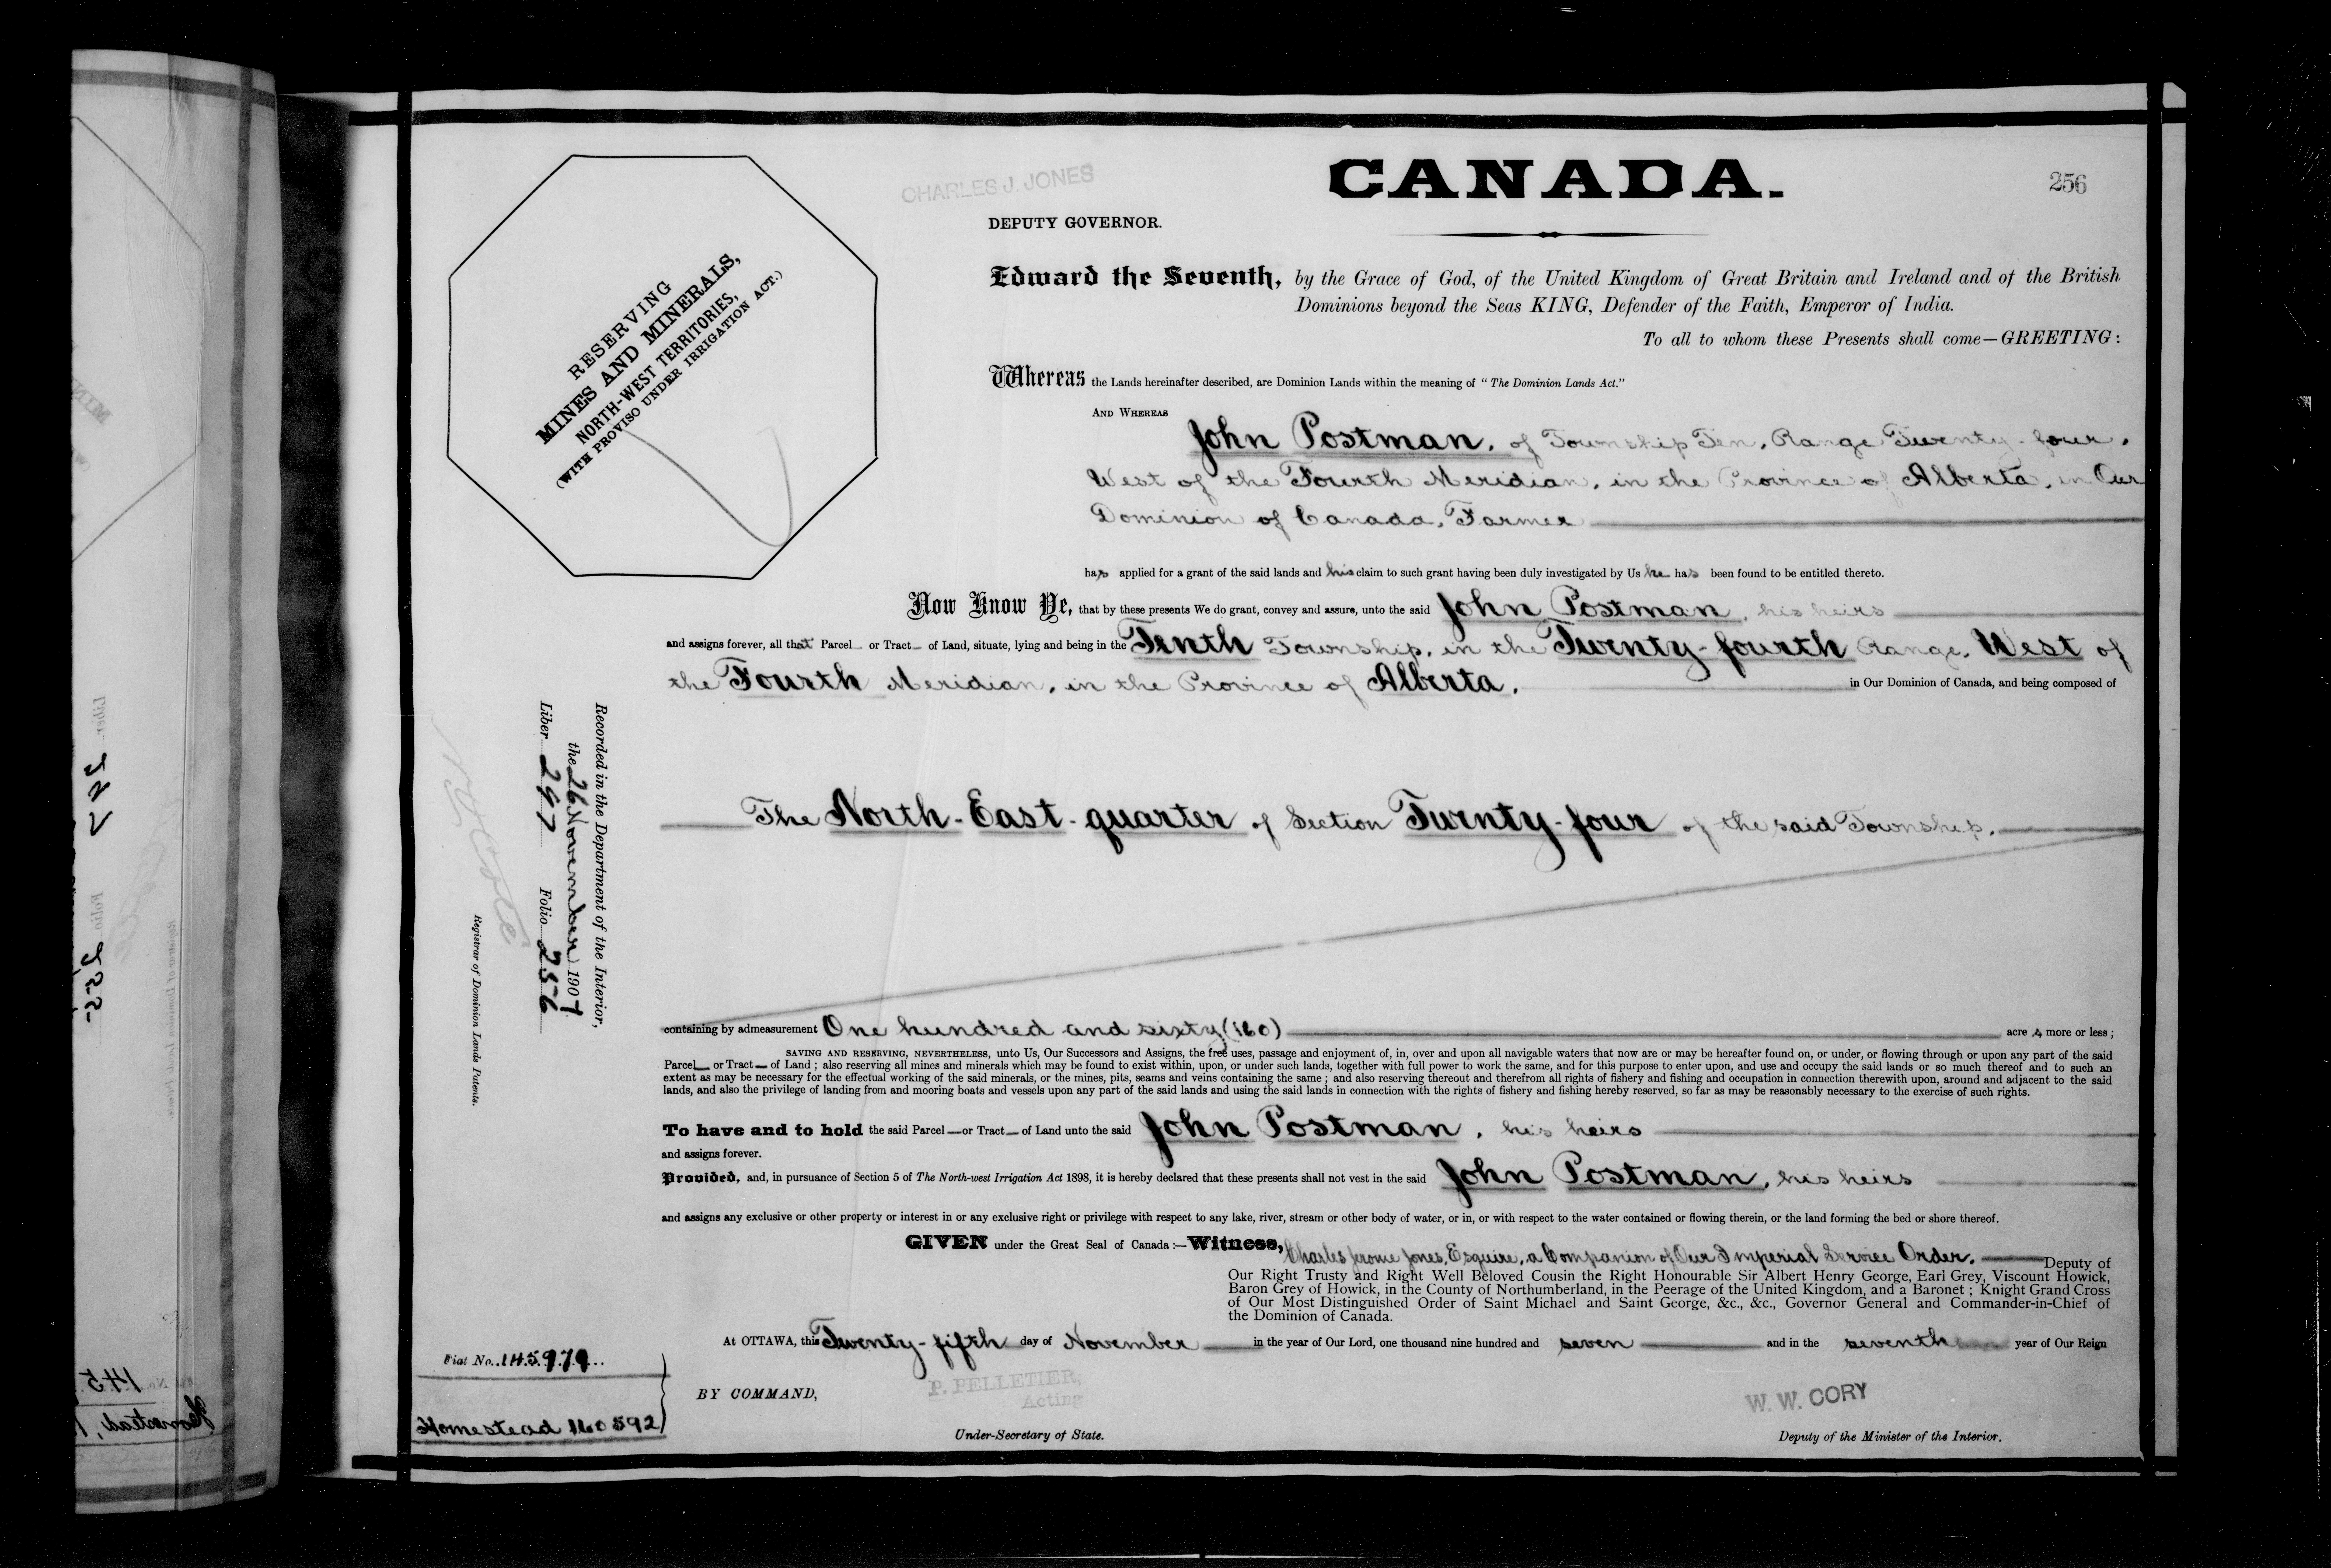 CHARLES J. JONES
CANADA.
256
DEPUTY GOVERNOR.
RESERVING
MINES AND MINERALS,
NORTH-WEST TERRITORIES,
(WITH PROVISO UNDER IRRIGATION ACT.)
Edward the Seventh, by the Grace of God, of the United Kingdom of Great Britain and Ireland and of the British
Dominions beyond the Seas KING, Defender of the Faith, Emperor of India.
To all to whom these Presents shall come—GREETING:
Whereas the Lands hereinafter described, are Dominion Lands within the meaning of "The Dominion Lands Act."
AND WHEREAS
John Postman, of Township Ten, Range Twenty-four,
West of the Fourth Meridian, in the Province of Alberta, in Our
Dominion of Canada, Farmer
has applied for a grant of the said lands and his claim to such grant having been duly investigated by Us he has been found to be entitled thereto.
Now Know Ye, that by these presents We do grant, convey and assure, unto the said John Postman, his heirs
and assigns forever, all that Parcel or Tract of Land, situate, lying and being in the Tenth Township, in the Twenty-fourth Range, West of
the Fourth Meridian, in the Province of Alberta, in Our Dominion of Canada, and being composed of
The North-East-quarter of Section Twenty-four of the said Township.
containing by admeasurement One hundred and sixty (160) acres more or less;
SAVING AND RESERVING, NEVERTHELESS, unto Us, Our Successors and Assigns, the free uses, passage and enjoyment of, in, over and upon all navigable waters that now are or may be hereafter found on, or under, or flowing through or upon any part of the said
Parcel or Tract of Land; also reserving all mines and minerals which may be found to exist within, upon, or under such lands, together with full power to work the same, and for this purpose to enter upon, and use and occupy the said lands or so much thereof and to such an
extent as may be necessary for the effectual working of the said minerals, or the mines, pits, seams and veins containing the same; and also reserving thereout and therefrom all rights of fishery and fishing and occupation in connection therewith upon, around and adjacent to the said
lands, and also the privilege of landing from and mooring boats and vessels upon any part of the said lands and using the said lands in connection with the rights of fishery and fishing hereby reserved, so far as may be reasonably necessary to the exercise of such rights.
To have and to hold the said Parcel or Tract of Land unto the said John Postman, his heirs
and assigns forever.
Provided, and, in pursuance of Section 5 of The North-west Irrigation Act 1898, it is hereby declared that these presents shall not vest in the said John Postman, his heirs
and assigns any exclusive or other property or interest in or any exclusive right or privilege with respect to any lake, river, stream or other body of water, or in, or with respect to the water contained or flowing therein, or the land forming the bed or shore thereof.
GIVEN under the Great Seal of Canada:—Witness, Charles Jerome Jones, Esquire, a Companion of Our Imperial Service Order, Deputy of
Our Right Trusty and Right Well Beloved Cousin the Right Honourable Sir Albert Henry George, Earl Grey, Viscount Howick,
Baron Grey of Howick, in the County of Northumberland, in the Peerage of the United Kingdom, and a Baronet; Knight Grand Cross
of Our Most Distinguished Order of Saint Michael and Saint George, &c., &c., Governor General and Commander-in-Chief of
the Dominion of Canada.
At OTTAWA, this Twenty-fifth day of November in the year of Our Lord, one thousand nine hundred and seven and in the seventh year of Our Reign
BY COMMAND,
P. PELLETIER,
Acting
Under-Secretary of State.
W. W. CORY
Deputy of the Minister of the Interior.
Recorded in the Department of the Interior,
the 26 November 1907
Liber 297 Folio 256
Registrar of Dominion Lands Patents.
Fiat No. 145979
Homestead 160592
Liber 297 Folio 255